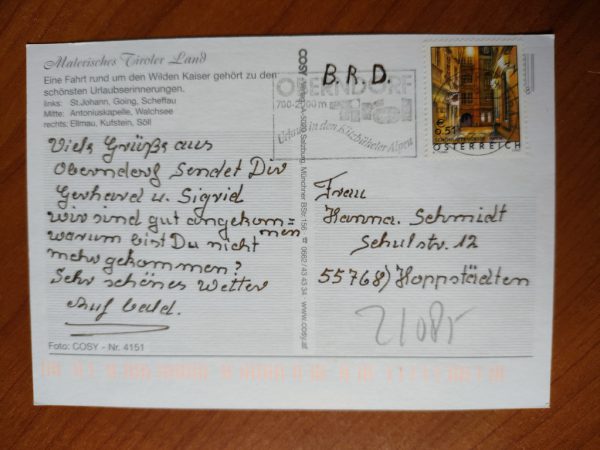 Malerisches Tiroler Land
Eine Fahrt rund um den Wilden Kaiser gehört zu den
schönsten Urlaubserinnerungen.
links: St.Johann, Going, Scheffau
Mitte: Antoniuskapelle, Walchsee
rechts: Ellmau, Kufstein, Söll
Viele Grüße aus
Oberndorf Sendet Dir
Gerhard u. Sigrid
wir sind gut angekom=
men
warum bist Du nicht
mehr gekommen?
Sehr schönes Wetter
Auf bald.
Foto: COSY - Nr. 4151
COSY
5020 Salzburg, Münchner BStr. 156
0662 / 43 43 34
www.cosy.at
B.R.D.
OBERNDORF
700-2000 m Tirol
Urlaub in den Kitzbüheler Alpen
€ 0,51
ÖSTERREICH
Frau
Hanna. Schmidt
Schulstr. 12
55768) Hoppstädten